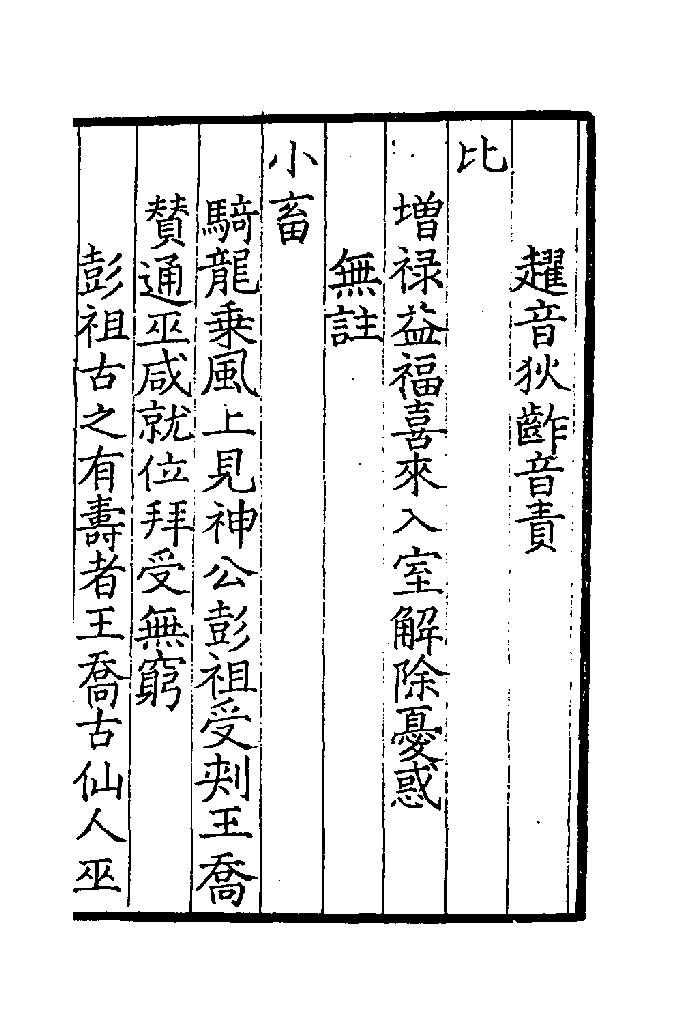 趯音狄齚音責
比
増禄益福喜來入室解除憂惑
無註
小畜
騎龍乗風上見神公彭祖受刾王喬
賛通巫咸就位拜受無窮
彭祖古之有壽者王喬古仙人巫